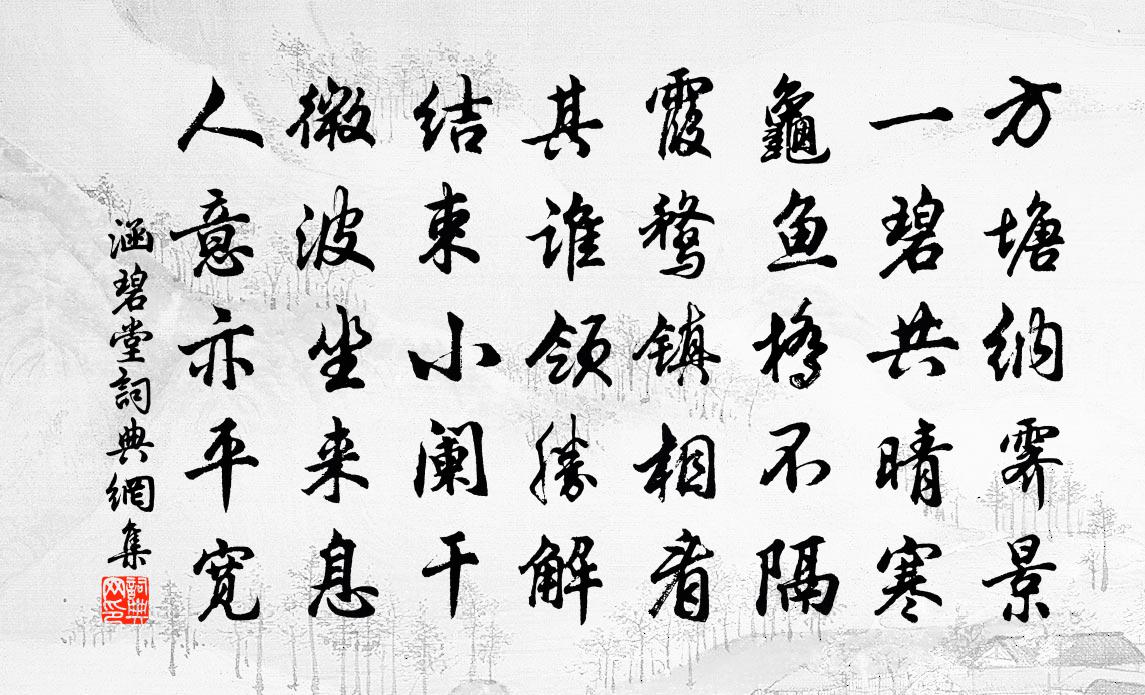 方塘纳霁景
一碧共晴寒
龜鱼橋不隔
霞鶩镇相看
其谁领勝解
结束小阑干
微波坐来息
人意亦平宽
涵碧堂詞典網集
詞典网印